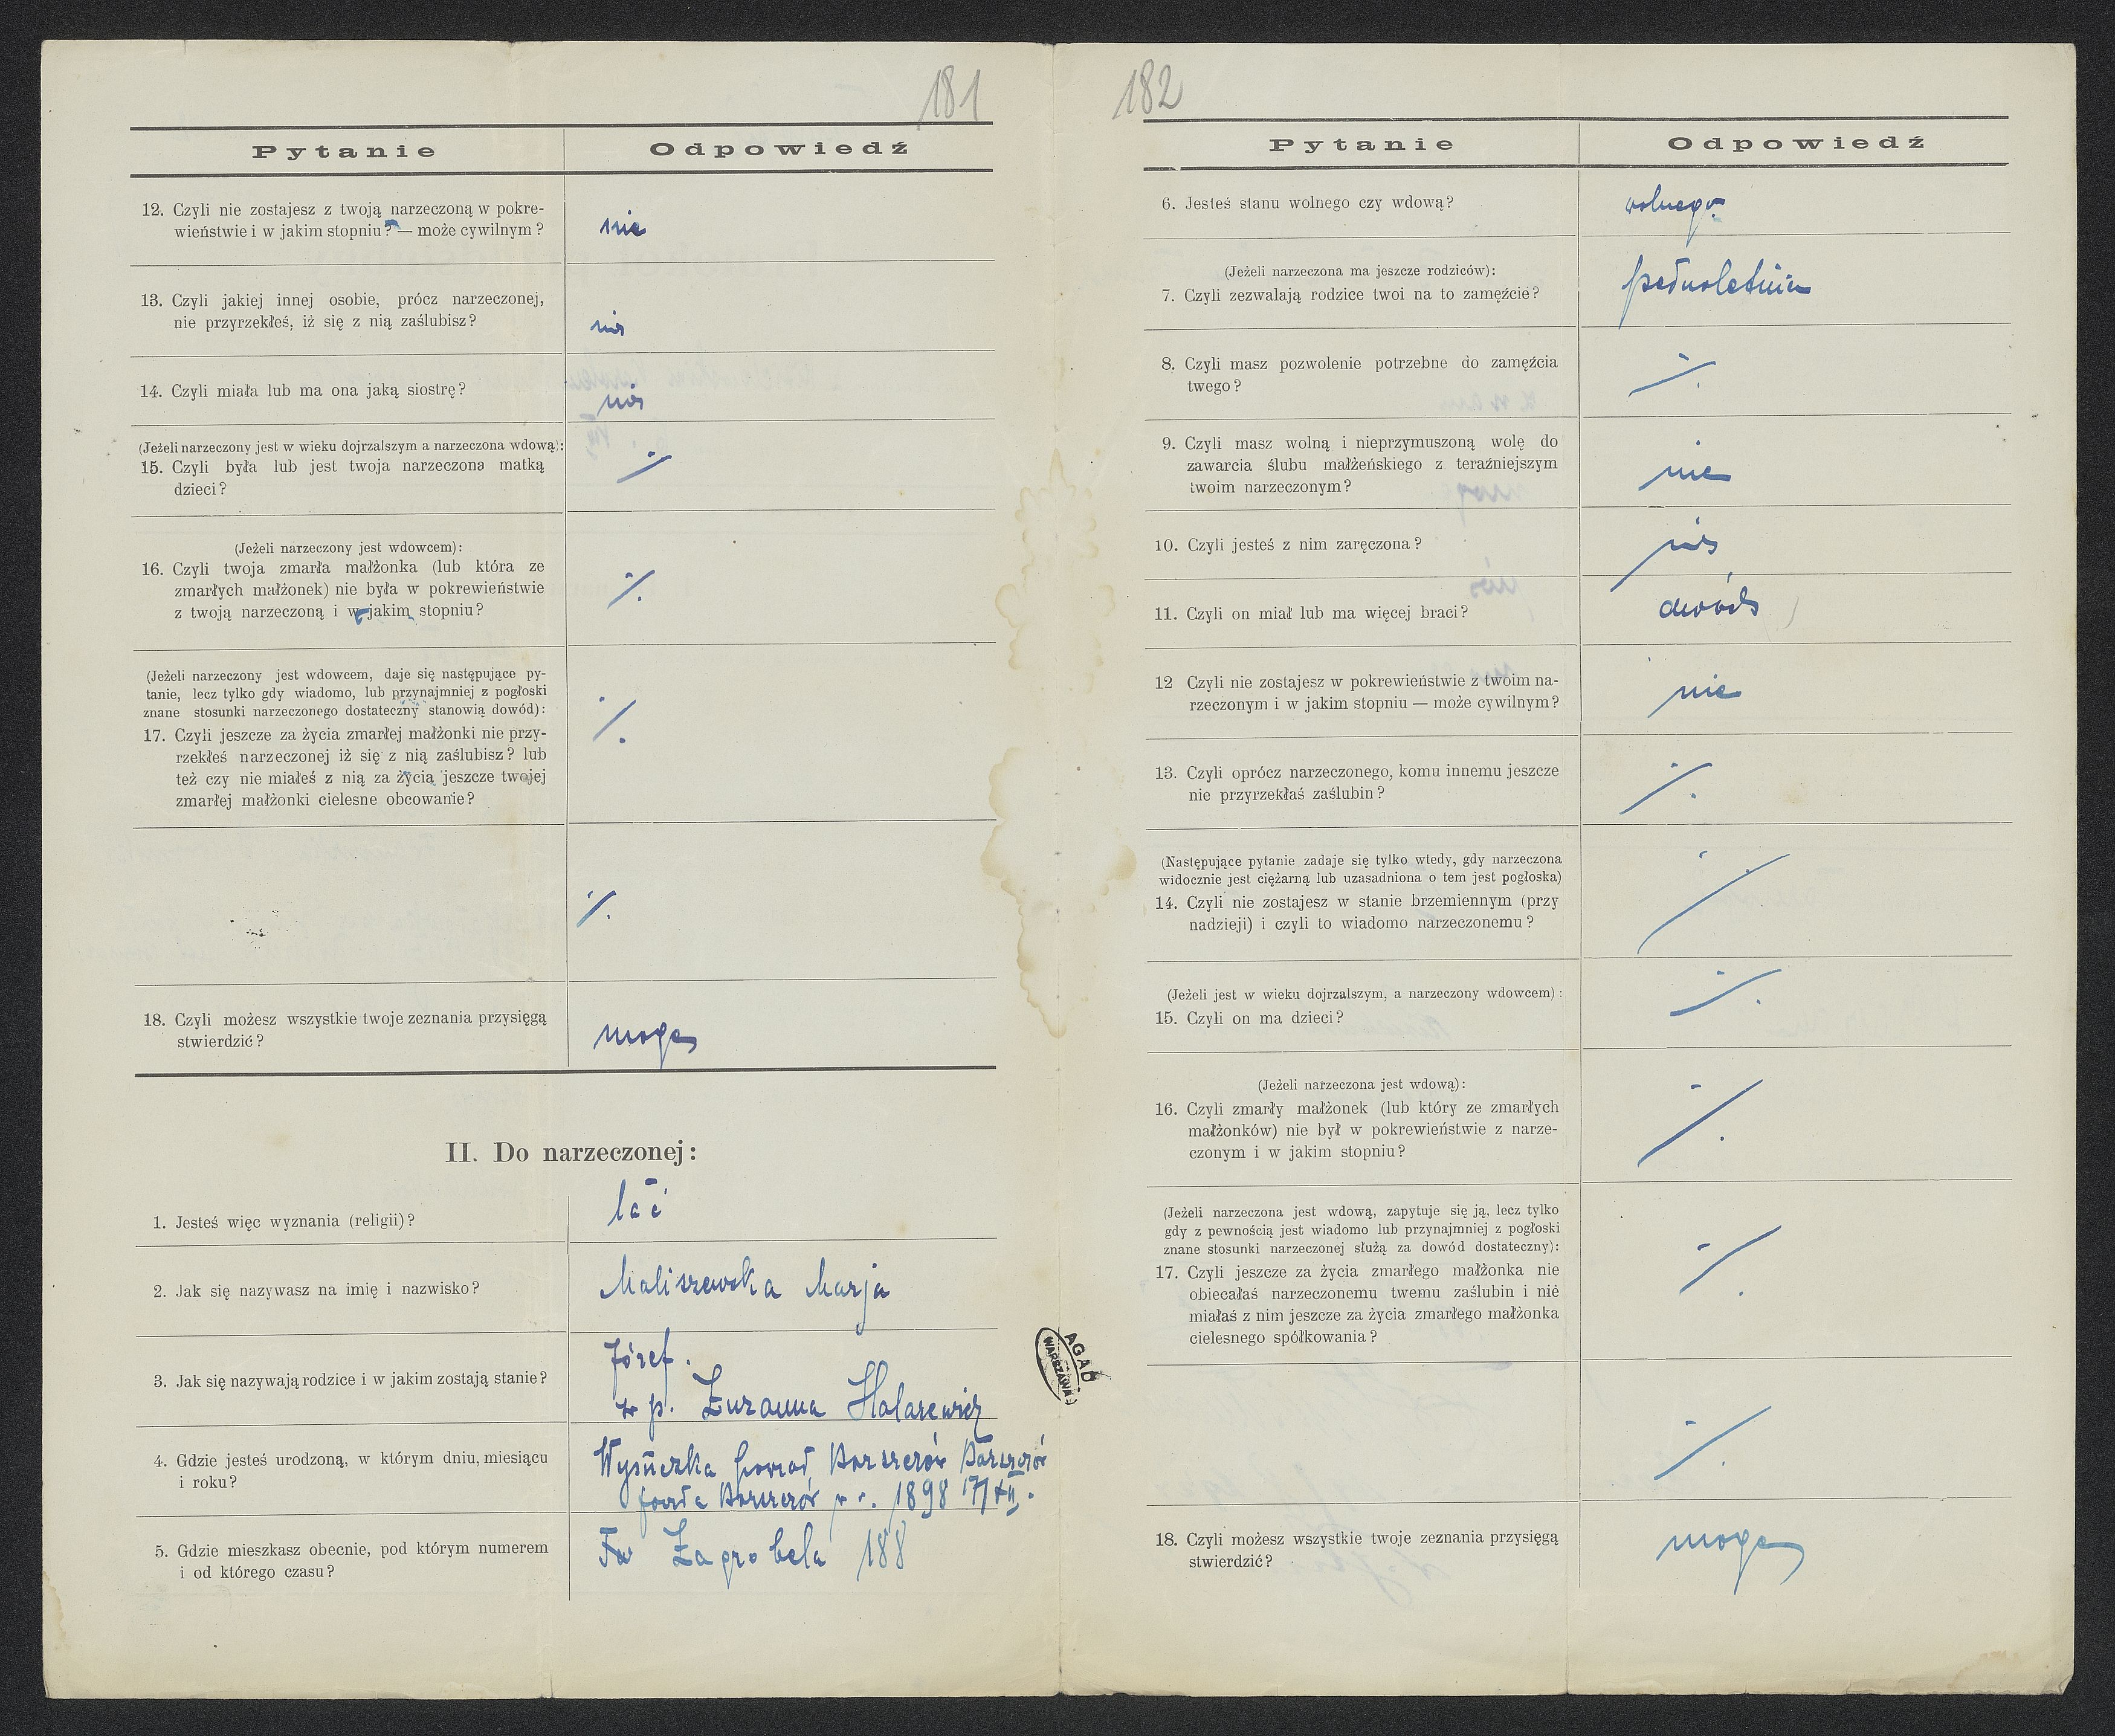 181
Pytanie Odpowiedź
12. Czyli nie zostajesz z twoją narzeczoną w pokre-
wieństwie i w jakim stopniu? — może cywilnym?
nie
13. Czyli jakiej innej osobie, prócz narzeczonej,
nie przyrzekłeś, iż się z nią zaślubisz?
nie
14. Czyli miała lub ma ona jaką siostrę?
(Jeżeli narzeczony jest w wieku dojrzalszym a narzeczona wdową):
15. Czyli była lub jest twoja narzeczona matką
dzieci?
·/.
(Jeżeli narzeczony jest wdowcem):
16. Czyli twoja zmarła małżonka (lub która ze
zmarłych małżonek) nie była w pokrewieństwie
z twoją narzeczoną i w jakim stopniu?
·/.
(Jeżeli narzeczony jest wdowcem, daje się następujące py-
tanie, lecz tylko gdy wiadomo, lub przynajmniej z pogłoski
znane stosunki narzeczonego dostateczny stanowią dowód):
17. Czyli jeszcze za życia zmarłej małżonki nie przy-
rzekłeś narzeczonej iż się z nią zaślubisz? lub
też czy nie miałeś z nią za życia jeszcze twojej
zmarłej małżonki cielesne obcowanie?
·/.
·/.
18. Czyli możesz wszystkie twoje zeznania przysięgą
stwierdzić?
mogę
II. Do narzeczonej:
1. Jesteś więc wyznania (religii)?
łać
2. Jak się nazywasz na imię i nazwisko?
Maliszewska Marja
3. Jak się nazywają rodzice i w jakim zostają stanie?
Józef.
Zuzanna
4. Gdzie jesteś urodzoną, w którym dniu, miesiącu
i roku?
Wysuczka Borszczów
Borszczów 1898
5. Gdzie mieszkasz obecnie, pod którym numerem
i od którego czasu?
Zagrobela 188
AGAD
WARSZAWA
182
Pytanie Odpowiedź
6. Jesteś stanu wolnego czy wdową?
wolnego
(Jeżeli narzeczona ma jeszcze rodziców):
7. Czyli zezwalają rodzice twoi na to zamęźcie?
pełnoletnia
8. Czyli masz pozwolenie potrzebne do zamęźcia
twego?
·/.
9. Czyli masz wolną i nieprzymuszoną wolę do
zawarcia ślubu małżeńskiego z teraźniejszym
twoim narzeczonym?
nie
10. Czyli jesteś z nim zaręczona?
11. Czyli on miał lub ma więcej braci?
12 Czyli nie zostajesz w pokrewieństwie z twoim na-
rzeczonym i w jakim stopniu — może cywilnym?
nie
13. Czyli oprócz narzeczonego, komu innemu jeszcze
nie przyrzekłaś zaślubin?
·/.
(Następujące pytanie zadaje się tylko wtedy, gdy narzeczona
widocznie jest ciężarną lub uzasadniona o tem jest pogłoska)
14. Czyli nie zostajesz w stanie brzemiennym (przy
nadzieji) i czyli to wiadomo narzeczonemu?
·/.
(Jeżeli jest w wieku dojrzalszym, a narzeczony wdowcem):
15. Czyli on ma dzieci?
·/.
(Jeżeli narzeczona jest wdową):
16. Czyli zmarły małżonek (lub który ze zmarłych
małżonków) nie był w pokrewieństwie z narze-
czonym i w jakim stopniu?
·/.
(Jeżeli narzeczona jest wdową, zapytuje się ją, lecz tylko
gdy z pewnością jest wiadomo lub przynajmniej z pogłoski
znane stosunki narzeczonej służą za dowód dostateczny):
17. Czyli jeszcze za życia zmarłego małżonka nie
obiecałaś narzeczonemu twemu zaślubin i nie
miałaś z nim jeszcze za życia zmarłego małżonka
cielesnego spółkowania?
·/.
·/.
18. Czyli możesz wszystkie twoje zeznania przysięgą
stwierdzić?
mogę